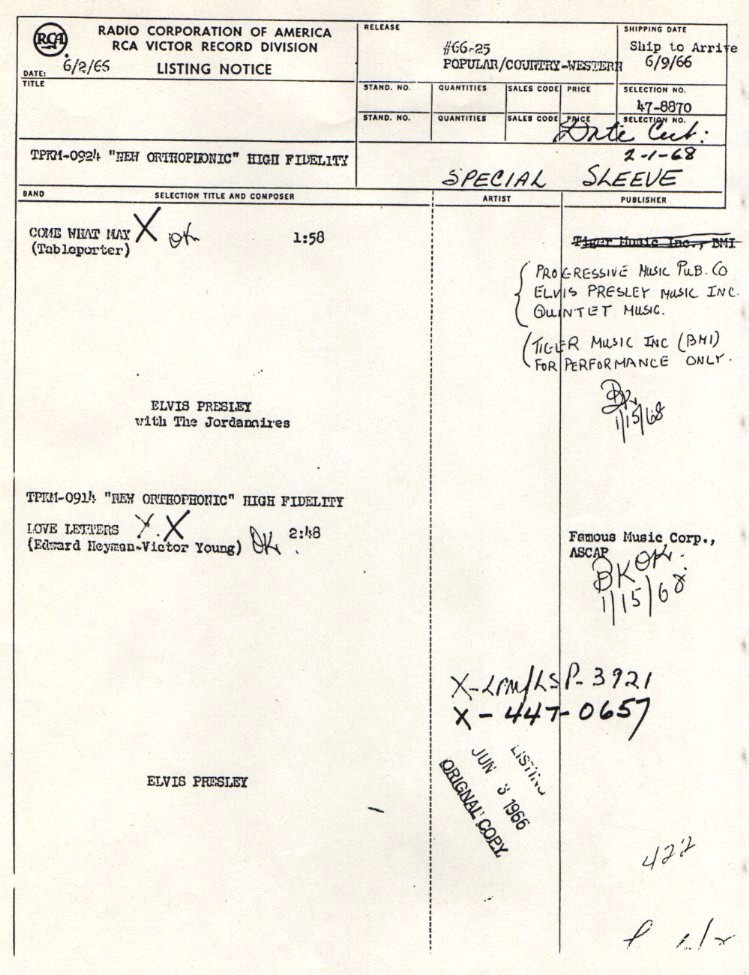 RCA
RADIO CORPORATION OF AMERICA
RCA VICTOR RECORD DIVISION
DATE: 6/2/66
LISTING NOTICE
RELEASE
#66-25
POPULAR/COUNTRY-WESTERN
SHIPPING DATE
Ship to Arrive
6/9/66
TITLE
STAND. NO. QUANTITIES SALES CODE PRICE SELECTION NO.
47-8870
STAND. NO. QUANTITIES SALES CODE PRICE SELECTION NO.
Date Cut:
2-1-68
TPKM-0924 "NEW ORTHOPHONIC" HIGH FIDELITY
SPECIAL SLEEVE
BAND SELECTION TITLE AND COMPOSER ARTIST PUBLISHER
COME WHAT MAY X OK 1:58
(Tableporter)
Tiger Music Inc., BMI
PROGRESSIVE MUSIC PUB. CO
ELVIS PRESLEY MUSIC INC.
QUINTET MUSIC.
(TIGER MUSIC INC (BMI)
FOR PERFORMANCE ONLY.
BK
1/15/68
ELVIS PRESLEY
with The Jordanaires
TPKM-0914 "NEW ORTHOPHONIC" HIGH FIDELITY
LOVE LETTERS X X 2:48
(Edward Heyman-Victor Young) OK
Famous Music Corp.,
ASCAP
BK OK.
1/15/68
X-LPM/LSP-3921
X-447-0657
LISTING
JUN 3 1966
ORIGNAL COPY
ELVIS PRESLEY
422